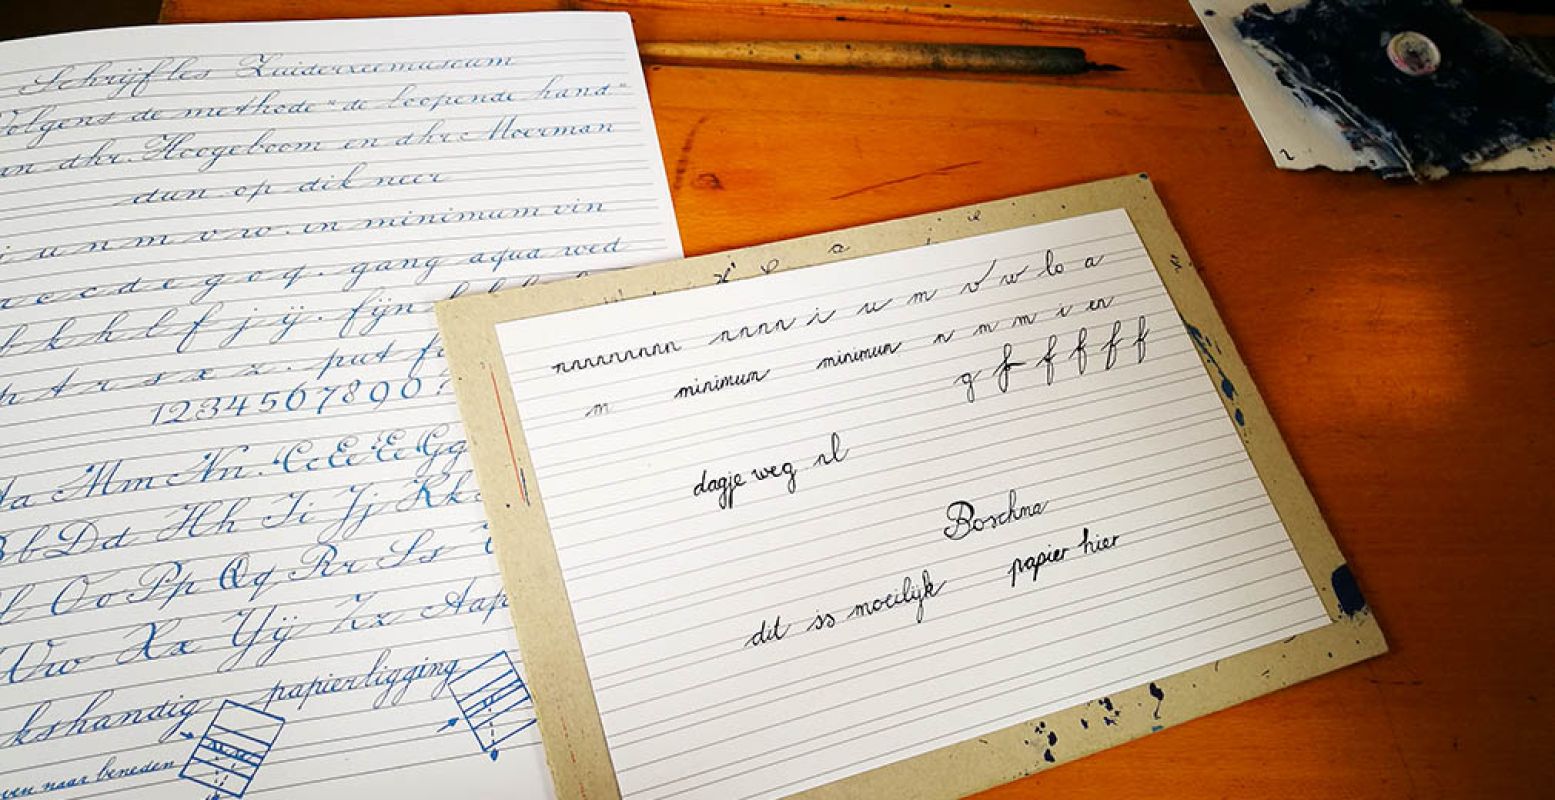 Schrijfles Zuiderzeemuseum
Volgens de methode "de loopende hand"
dhr. Hoogeboom en dhr. Moerman
dun op dik neer
i u n m v w. in minimum vin
c c d e g o q. gang aqua wed
k h l f j ij. fijn
t r s x z. put
1234567890?
a Mm Nn. Cc Ee Ee Gg
b Dd Hh Ii Jj Kk
Oo Pp Qq Rr Ss
Vw Xx Yÿ Zz Aap
kshandig papierligging
ven naar beneden
nnnnnnnnn nnnn i u m v w lo a
m minimum minimum n m m i en
g f f f f f
dagje weg nl
Boschma
dit is moeilijk papier hier